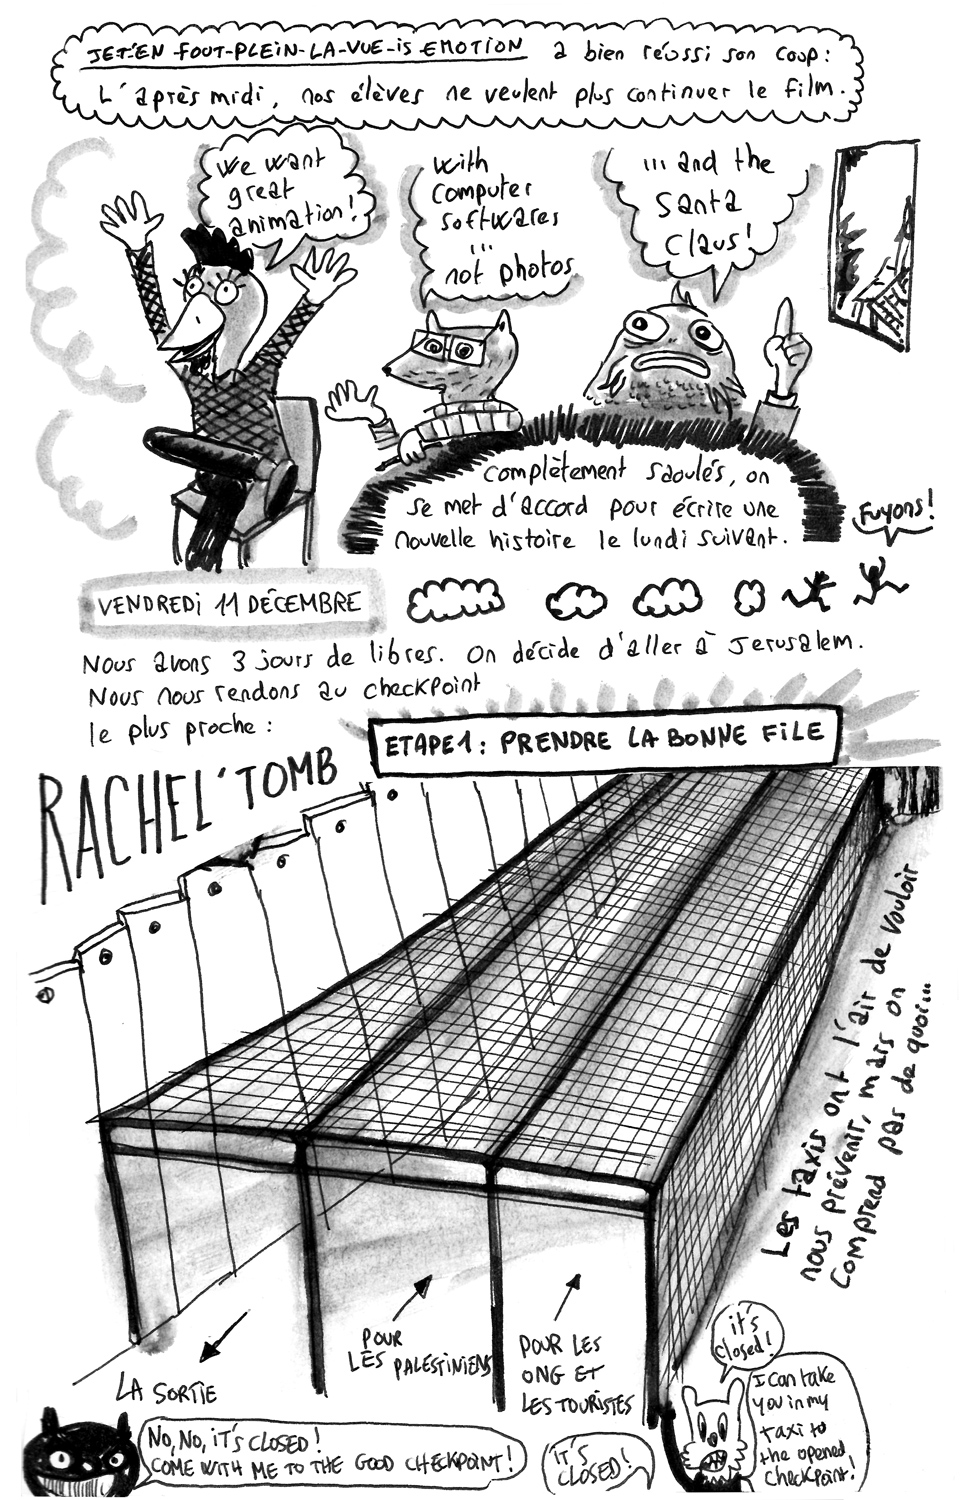 JET'EN FOUT-PLEIN-LA-VUE-is EMOTION a bien réussi son coup:
L'après midi, nos élèves ne veulent plus continuer le film.
We want
great
animation!
with
computer
softwares
...
not photos
... and the
Santa
Claus!
complètement saoulés, on
se met d'accord pour écrire une
nouvelle histoire le lundi suivant.
Fuyons!
VENDREDI 11 DÉCEMBRE
Nous avons 3 jours de libres. On décide d'aller à Jerusalem.
Nous nous rendons au checkpoint
le plus proche :
ETAPE 1 : PRENDRE LA BONNE FILE
RACHEL'TOMB
Les taxis ont l'air de vouloir
nous prévenir, mais on
comprend pas de quoi...
LA SORTIE
POUR
LES PALESTINIENS
POUR LES
ONG ET
LES TOURISTES
it's
closed!
I can take
you in my
taxi to
the opened
checkpoint!
NO, NO, IT'S CLOSED!
COME WITH ME TO THE GOOD CHECKPOINT!
IT'S
CLOSED!